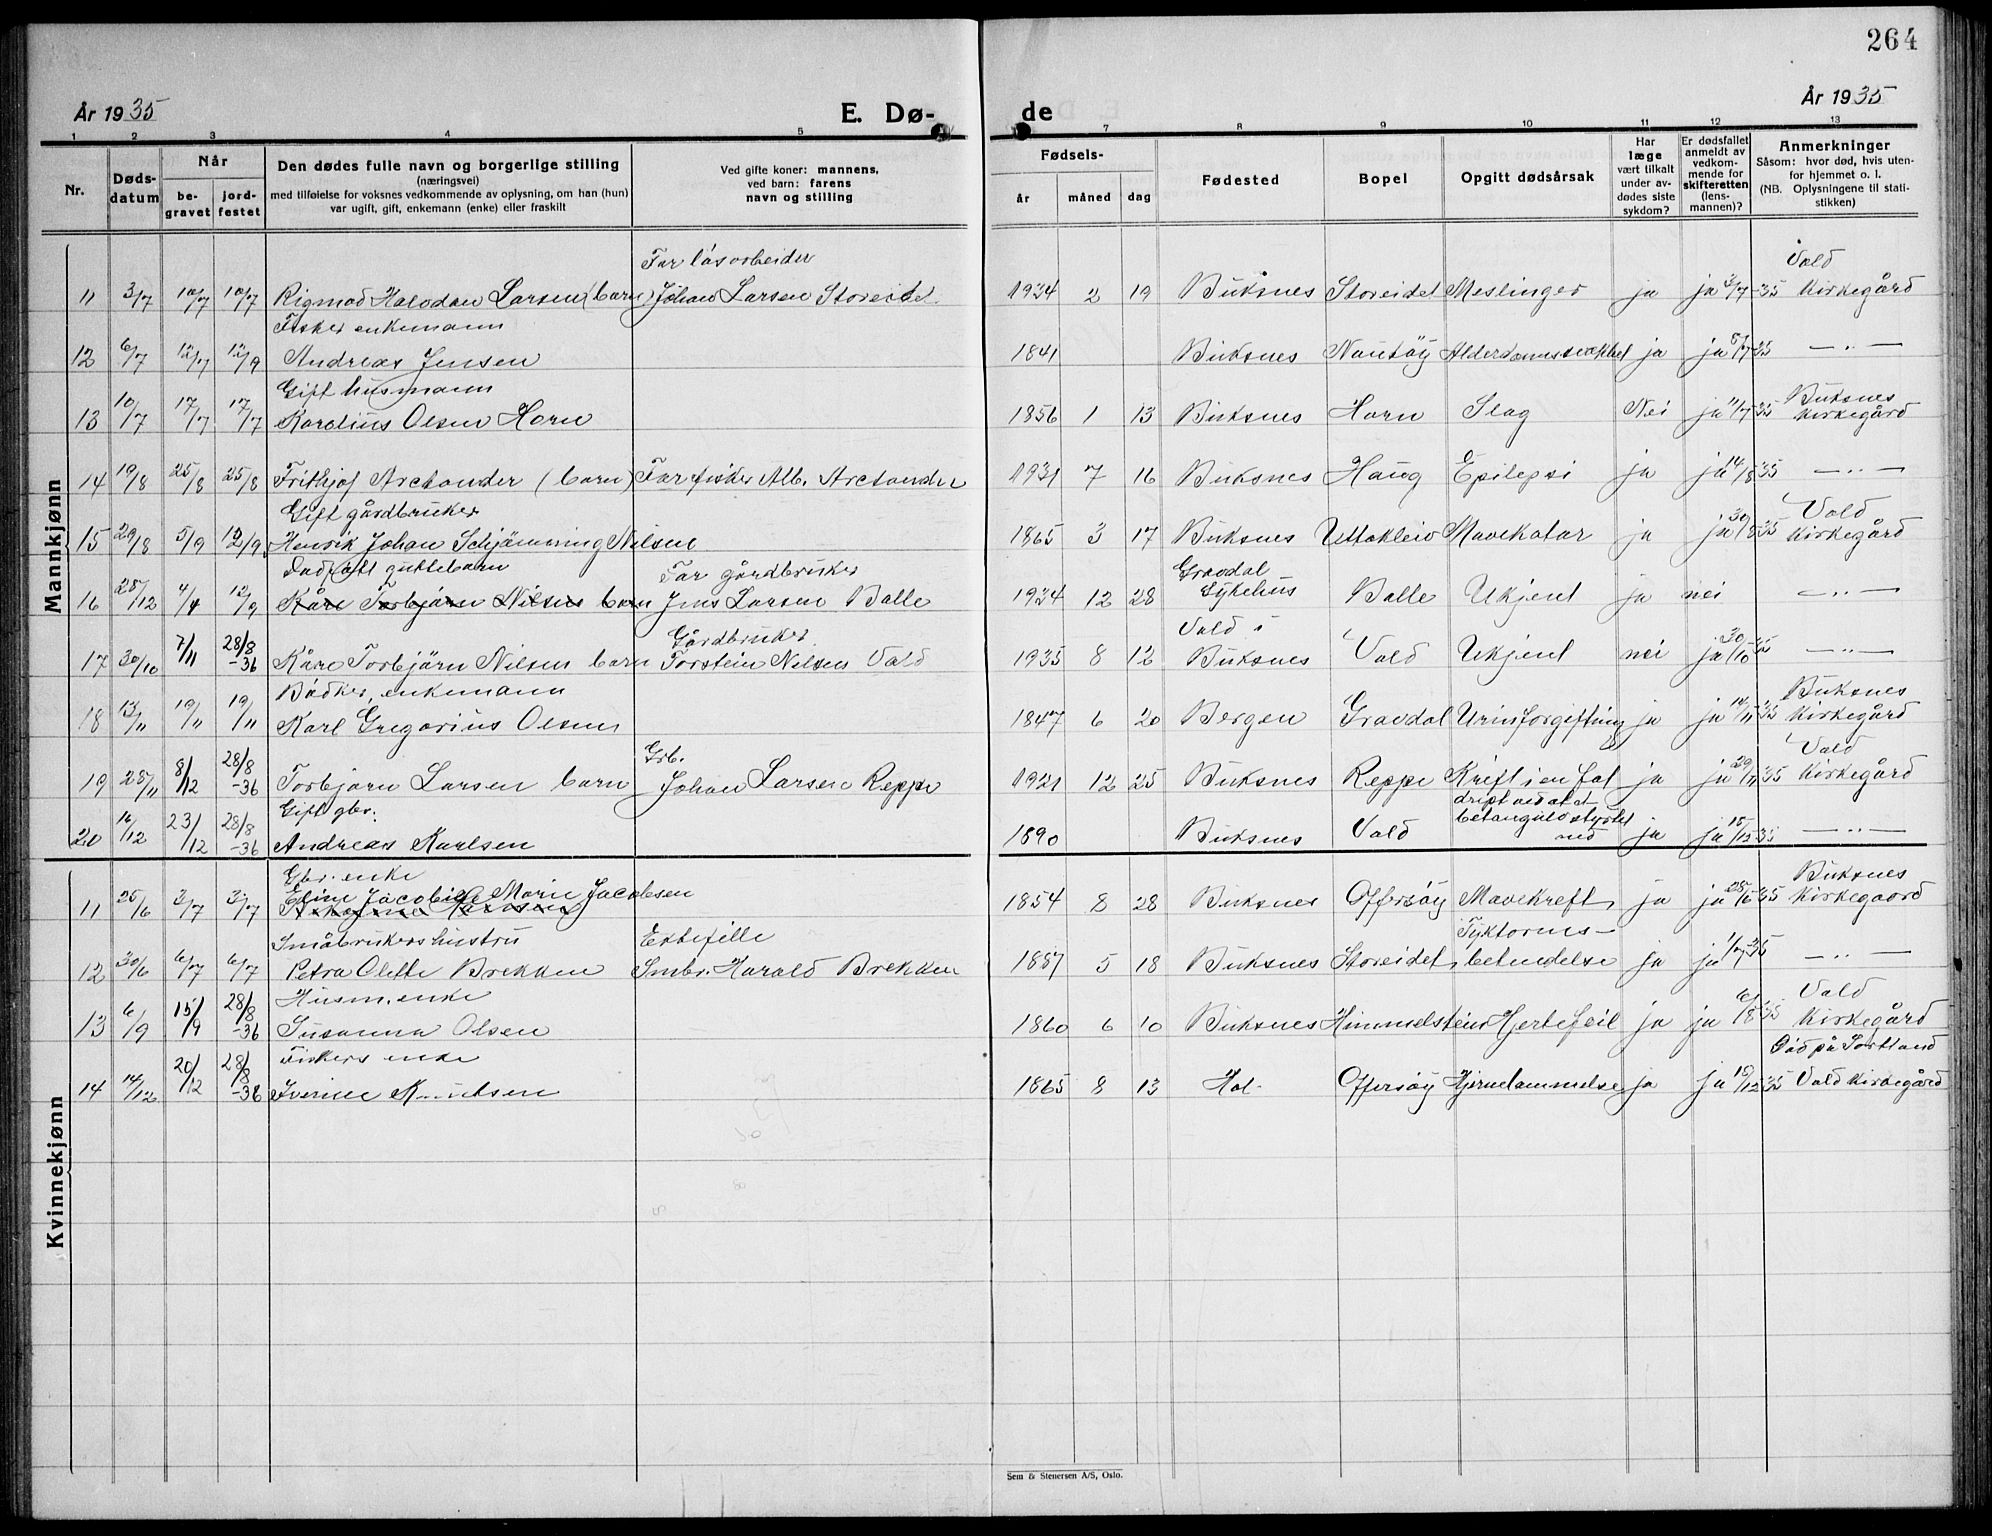 264
År 1935 E. Dø- de År 1935
1 2 3 4 5 7 8 9 10 11 12 13
Nr.
Døds-
datum
Når
be-
gravet
jord-
festet
Den dødes fulle navn og borgerlige stilling
(næringsvei)
med tilføielse for voksnes vedkommende av oplysning, om han (hun)
var ugift, gift, enkemann (enke) eller fraskilt
Ved gifte koner: mannens,
ved barn: farens
navn og stilling
Fødsels-
år måned dag
Fødested
Bopel
Opgitt dødsårsak
Har
læge
vært tilkalt
under av-
dødes siste
sykdom?
Er dødsfallet
anmeldt av
vedkom-
mende for
skifteretten
(lens-
mannen)?
Anmerkninger
Såsom: hvor død, hvis uten-
for hjemmet o. l.
(NB. Oplysningene til stati-
stikken)
Mannkjønn
Far løsarbeider Vold
11 3/7 10/7 10/7 Rigmod Halvdan Larsen (barn) Johan Larsen Storeidet 1934 2 19 Buksnes Storeidet Meslinger ja ja 3/7-35 Kirkegård
Fisker enkemann
12 6/7 12/7 12/9 Andreas Jensen 1841 Buksnes ja ja 8/7 35 —„—
Gift husmann Buksnes
13 10/7 17/7 17/7 Karelius Olsen Horn 1856 1 13 Buksnes Horn Slag Nei ja 11/7 35 Kirkegård
14 19/8 25/8 25/8 Frithjof Arctander (barn) Far fisker Alb. Arctander 1931 7 16 Buksnes Haug Epilepsi ja ja 14/8 35 —„—
Gift gårdbruker Vold
15 29/8 5/9 12/9 Henrik Johan Schjämming Nilsen 1865 3 17 Buksnes Uttakleiv Mavekatar ja ja 30/8 35 Kirkegård
Dødfött guttebarn Far gårdbruker Gravdal
16 28/12 4/4 12/9 Kåre Torbjörn Nilsens barn Jens Larsen Balle 1934 12 28 Sykehus Balle Ukjent ja nei —„—
Gårdbruker Vold i
17 30/10 7/11 28/8-36 Kåre Torbjörn Nilsen barn Torstein Nilsen Vold 1935 8 12 Buksnes Vold Ukjent nei ja 30/10 35 —„—
Bödker, enkemann Buksnes
18 13/11 19/11 19/11 Karl Gregorius Olsen 1847 6 20 Bergen Gravdal Urinforgiftning ja ja 14/11 35 Kirkegård
Grb. Vold
19 28/11 8/12 28/8-36 Torbjørn Larsen barn Johan Larsen Reppe 1921 12 25 Buksnes Reppe Kreft i en fot ja ja 29/11 35 Kirkegård
Gift gbr. drept ved at et
20 16/12 23/12 28/8-36 Andreas Karlsen 1890 Buksnes Vold betongulv styrtet ned ja ja 18/12 35 —„—
Kvinnekjønn
Gbr. enke Buksnes
11 25/6 3/7 3/7 Eline Jacobine Marie Jacobsen 1854 8 28 Buksnes Offersöy Mavekreft ja ja 28/6 35 Kirkegaard
Småbrukers hustru Ektefelle Tyktarms-
12 30/6 6/7 6/7 Petra Olette Brekken Smbr. Harald Brekken 1887 5 18 Buksnes Storeidet betendelse ja ja 1/7 35 —„—
Husm. enke Vold
13 6/9 15/9 28/8-36 Susanna Olsen 1860 6 10 Buksnes Himmelstein Hjertefeil ja ja 6/8 35 Kirkegård
Fiskers enke Död på Sortland
14 14/12 20/12 28/8-36 Iverine Knutsen 1865 8 13 Hol Offersöy Hjernelammelse ja ja 18/12 35 Vold Kirkegård
Sem & Stenersen A/S, Oslo.